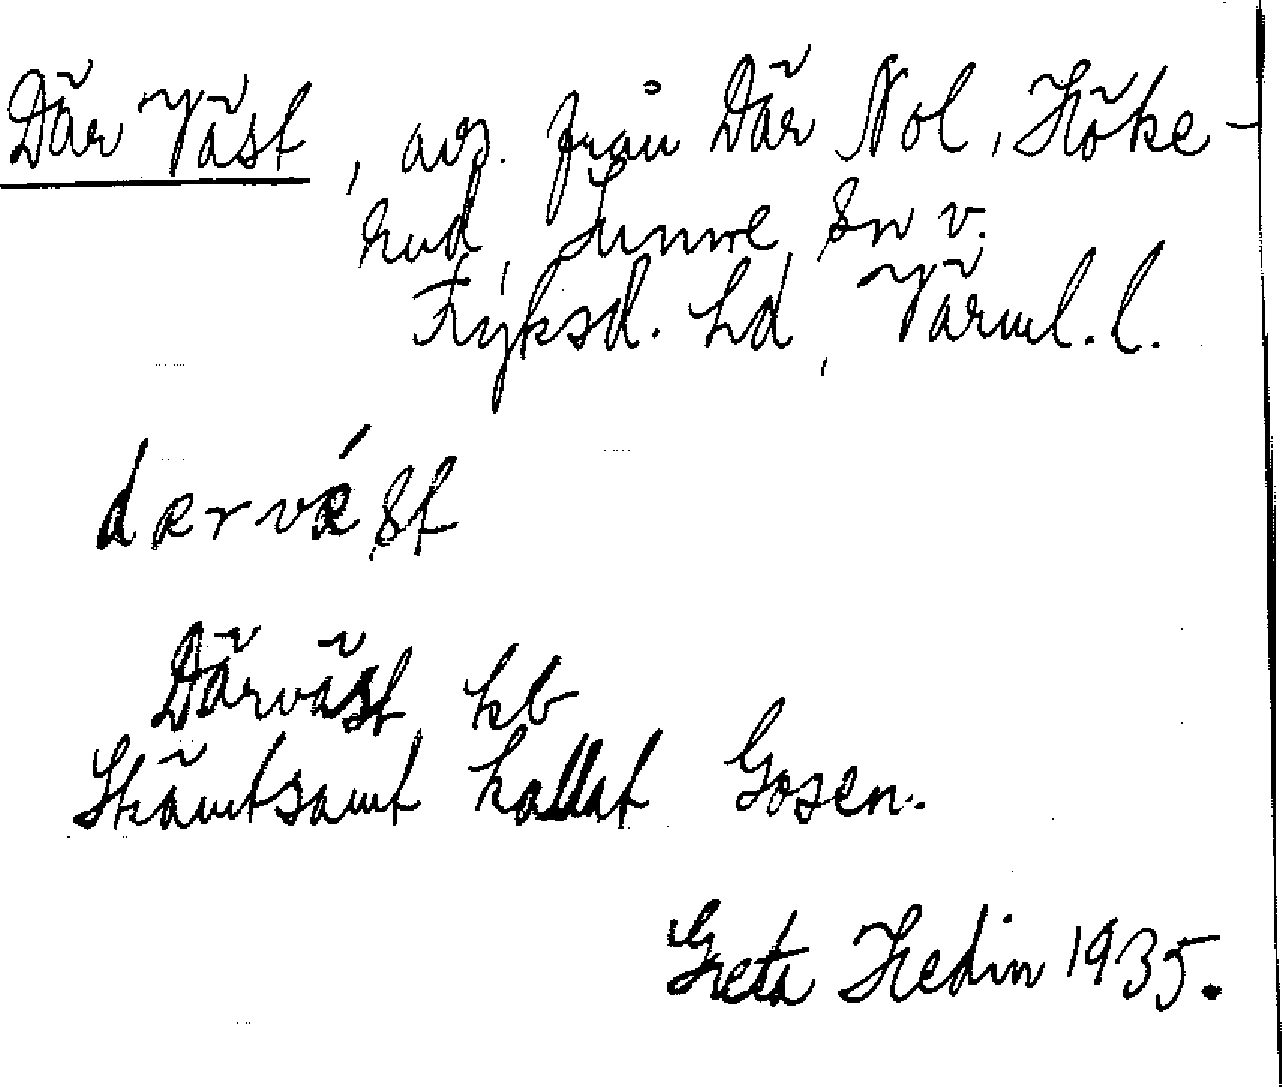 Där Väst, avs. från Där Nol, Höke-
rud, Sunne sn v.
Fryksd. hd, Värml. l.
dærvǽst
Därväst kb
Skämtsamt kallat Gosen.
Greta Hedin 1935.